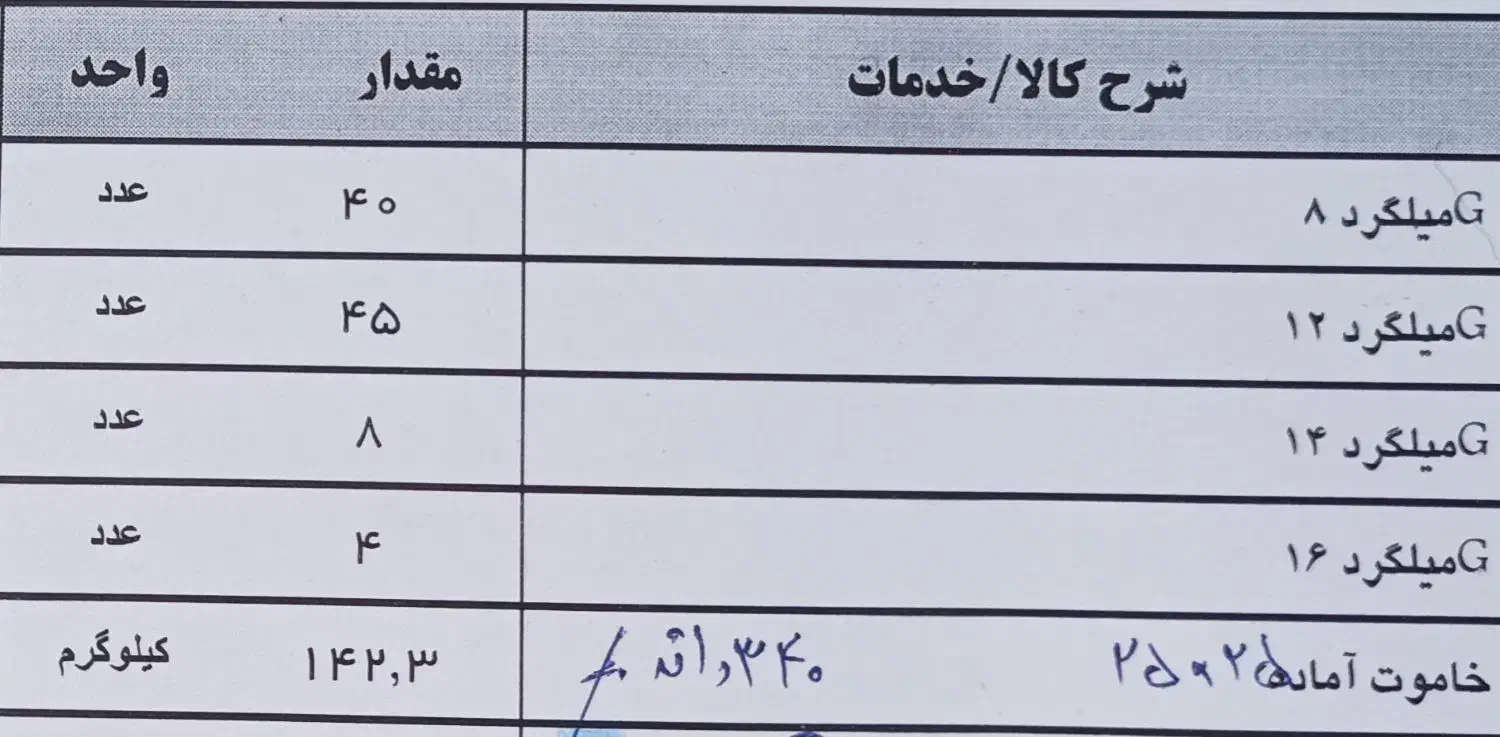 شرح کالا/خدمات مقدار واحد
Gمیلگرد ۸ ۴۰ عدد
Gمیلگرد ۱۲ ۴۵ عدد
Gمیلگرد ۱۴ ۸ عدد
Gمیلگرد ۱۶ ۴ عدد
خاموت آماده ۲۵ × ۲۵ ۳۴۰ دانه ۱۴۲,۳ کیلوگرم